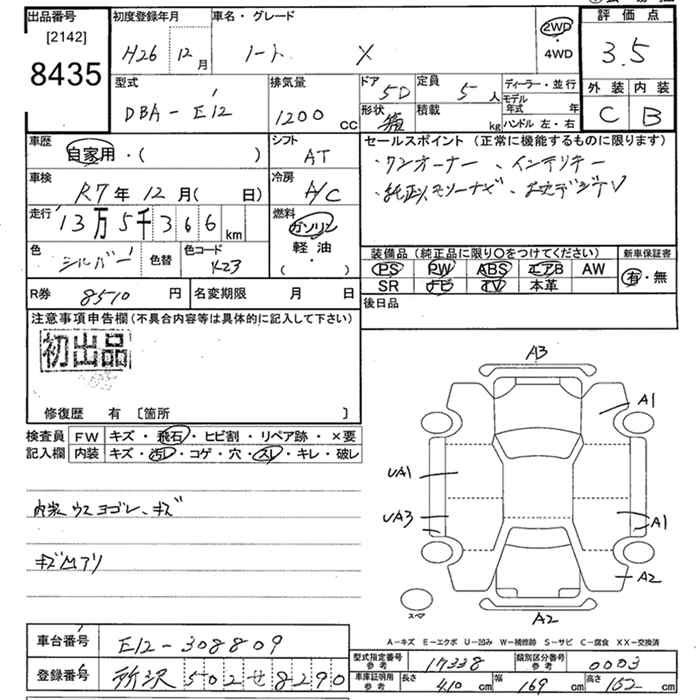 出品番号
[2142]
8435
初度登録年月
H26 12月
車名・グレード
ノート X
2WD
・
4WD
評価点
3.5
外装 内装
C B
型式
DBA-E12
排気量
1200 cc
ドア
5D
定員
5人
形状
積載
kg
ディーラー・並行
モデル年式 年
ハンドル 左・右
車歴
自家用・( )
シフト
AT
セールスポイント (正常に機能するものに限ります)
・ワンオーナー ・インテリキー
・純正メモリーナビ ・
車検
R7年12月( 日)
冷房
A/C
走行
13万5千366km
燃料
ガソリン
軽油
・( )
色
シルバー
色替
色コード
K23
装備品 (純正品に限り○をつけてください)
PS PW ABS エアB AW
SR ナビ TV 本革
新車保証書
有・無
R券 8510円
名変期限 月 日
後日品
注意事項申告欄 (不具合内容等は具体的に記入して下さい)
初出品
修復歴 有 [箇所 ]
検査員記入欄
FW キズ・飛石・ヒビ割・リペア跡・×要
内装 キズ・汚レ・コゲ・穴・スレ・キレ・破レ
内装 ウスヨゴレ、キズ
キズUアリ
A3
A1
UA1
UA3
A1
A2
スペア
A2
A-キズ E-エクボ U-凹み W-補修跡 S-サビ C-腐食 XX-交換済
車台番号 E12-308809
登録番号 所沢 502せ8290
型式指定番号 参考 17338
類別区分番号 参考 0003
車庫証明用 参考 長さ 410cm 幅 169cm 高さ 152cm